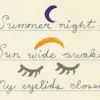 Summer night
Sun wide awake
My eyelids closed